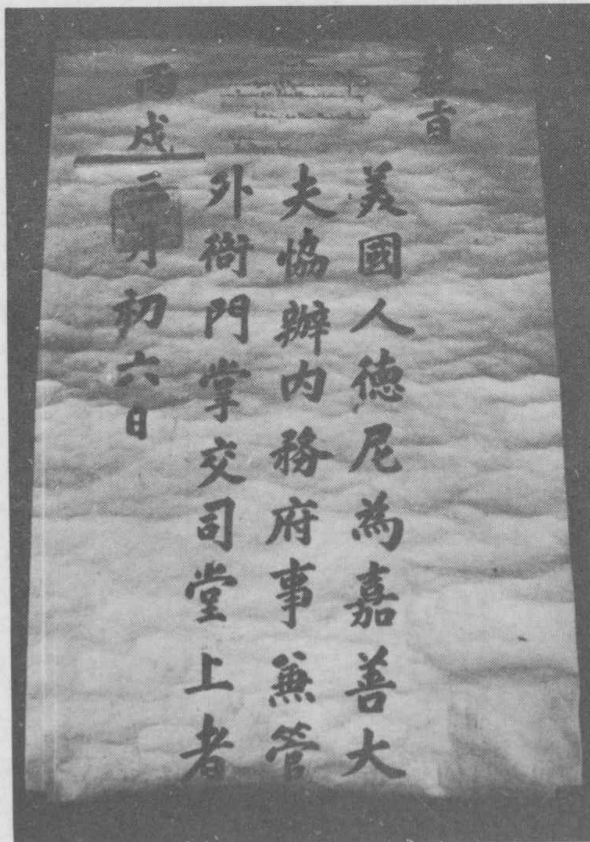 旨
美國人德尼為嘉善大
夫恊辦內務府事兼管
外衙門掌交司堂上者
丙戌三月初六日